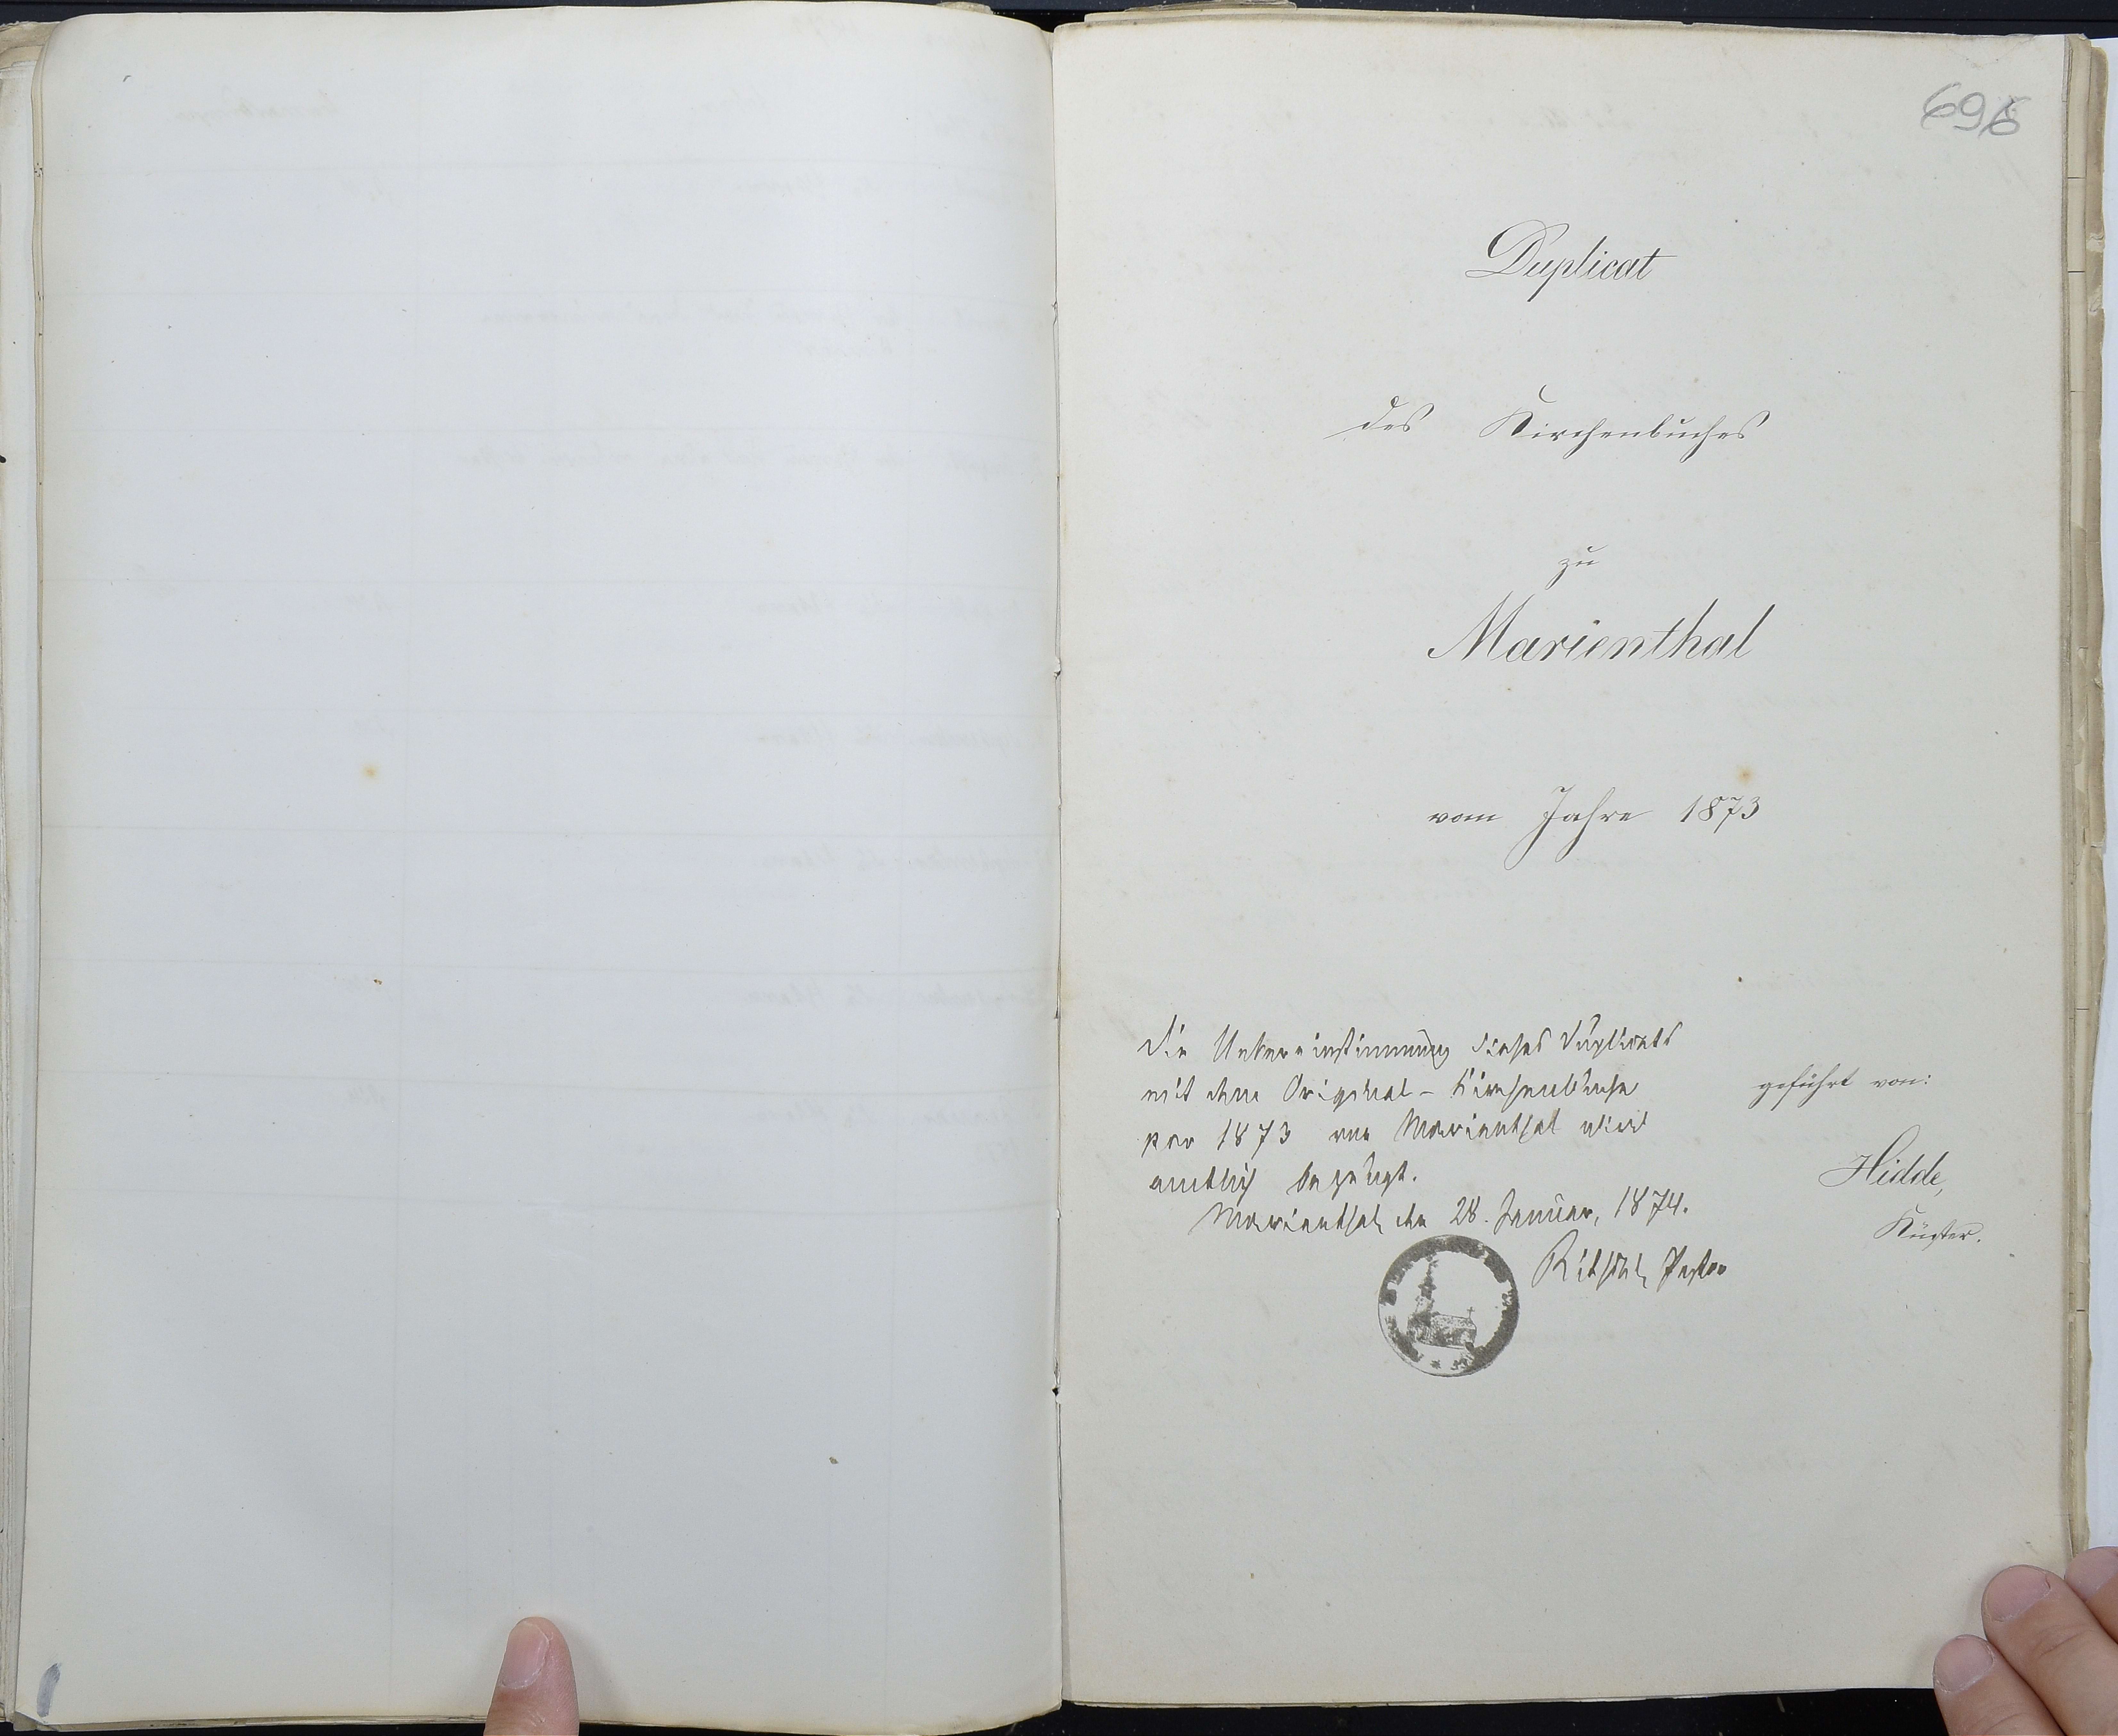 696
Duplicat
des Kirchenbuches
zu
Marienthal
vom Jahre 1873
Die Uebereinstimmung dieses Duplicats
mit dem Original-Kirchenbuche
pro 1873 von Marienthal wird
amtlich bezeugt.
Marienthal, den 28. Januar, 1874.
Pastor
geführt von:
Hidde,
Küster.